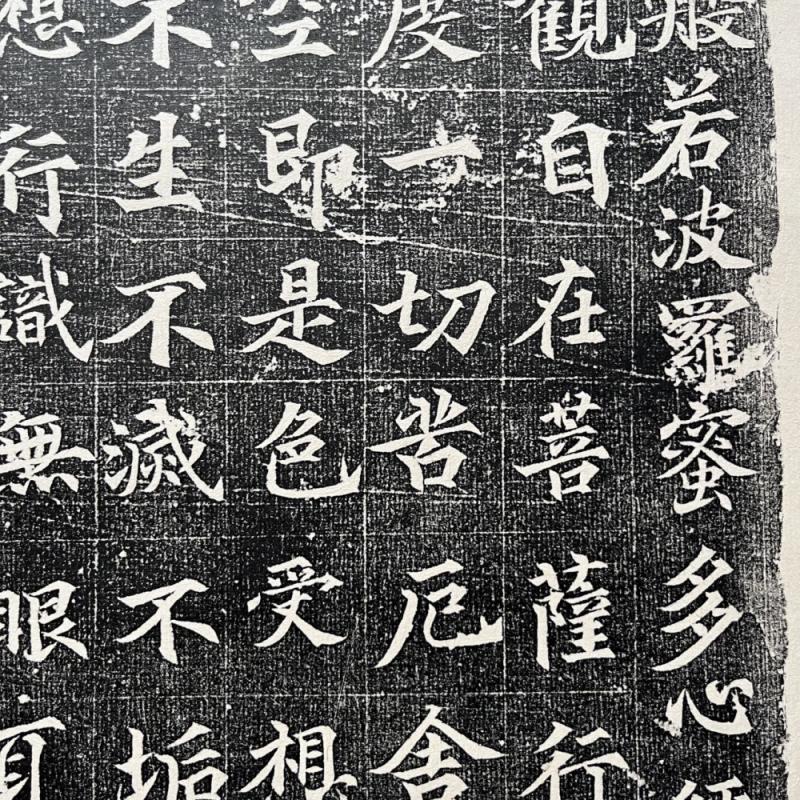 般若波羅蜜多心經
觀自在菩薩行
度一切苦厄舍
空即是色受想
不生不滅不垢
想行識無眼耳